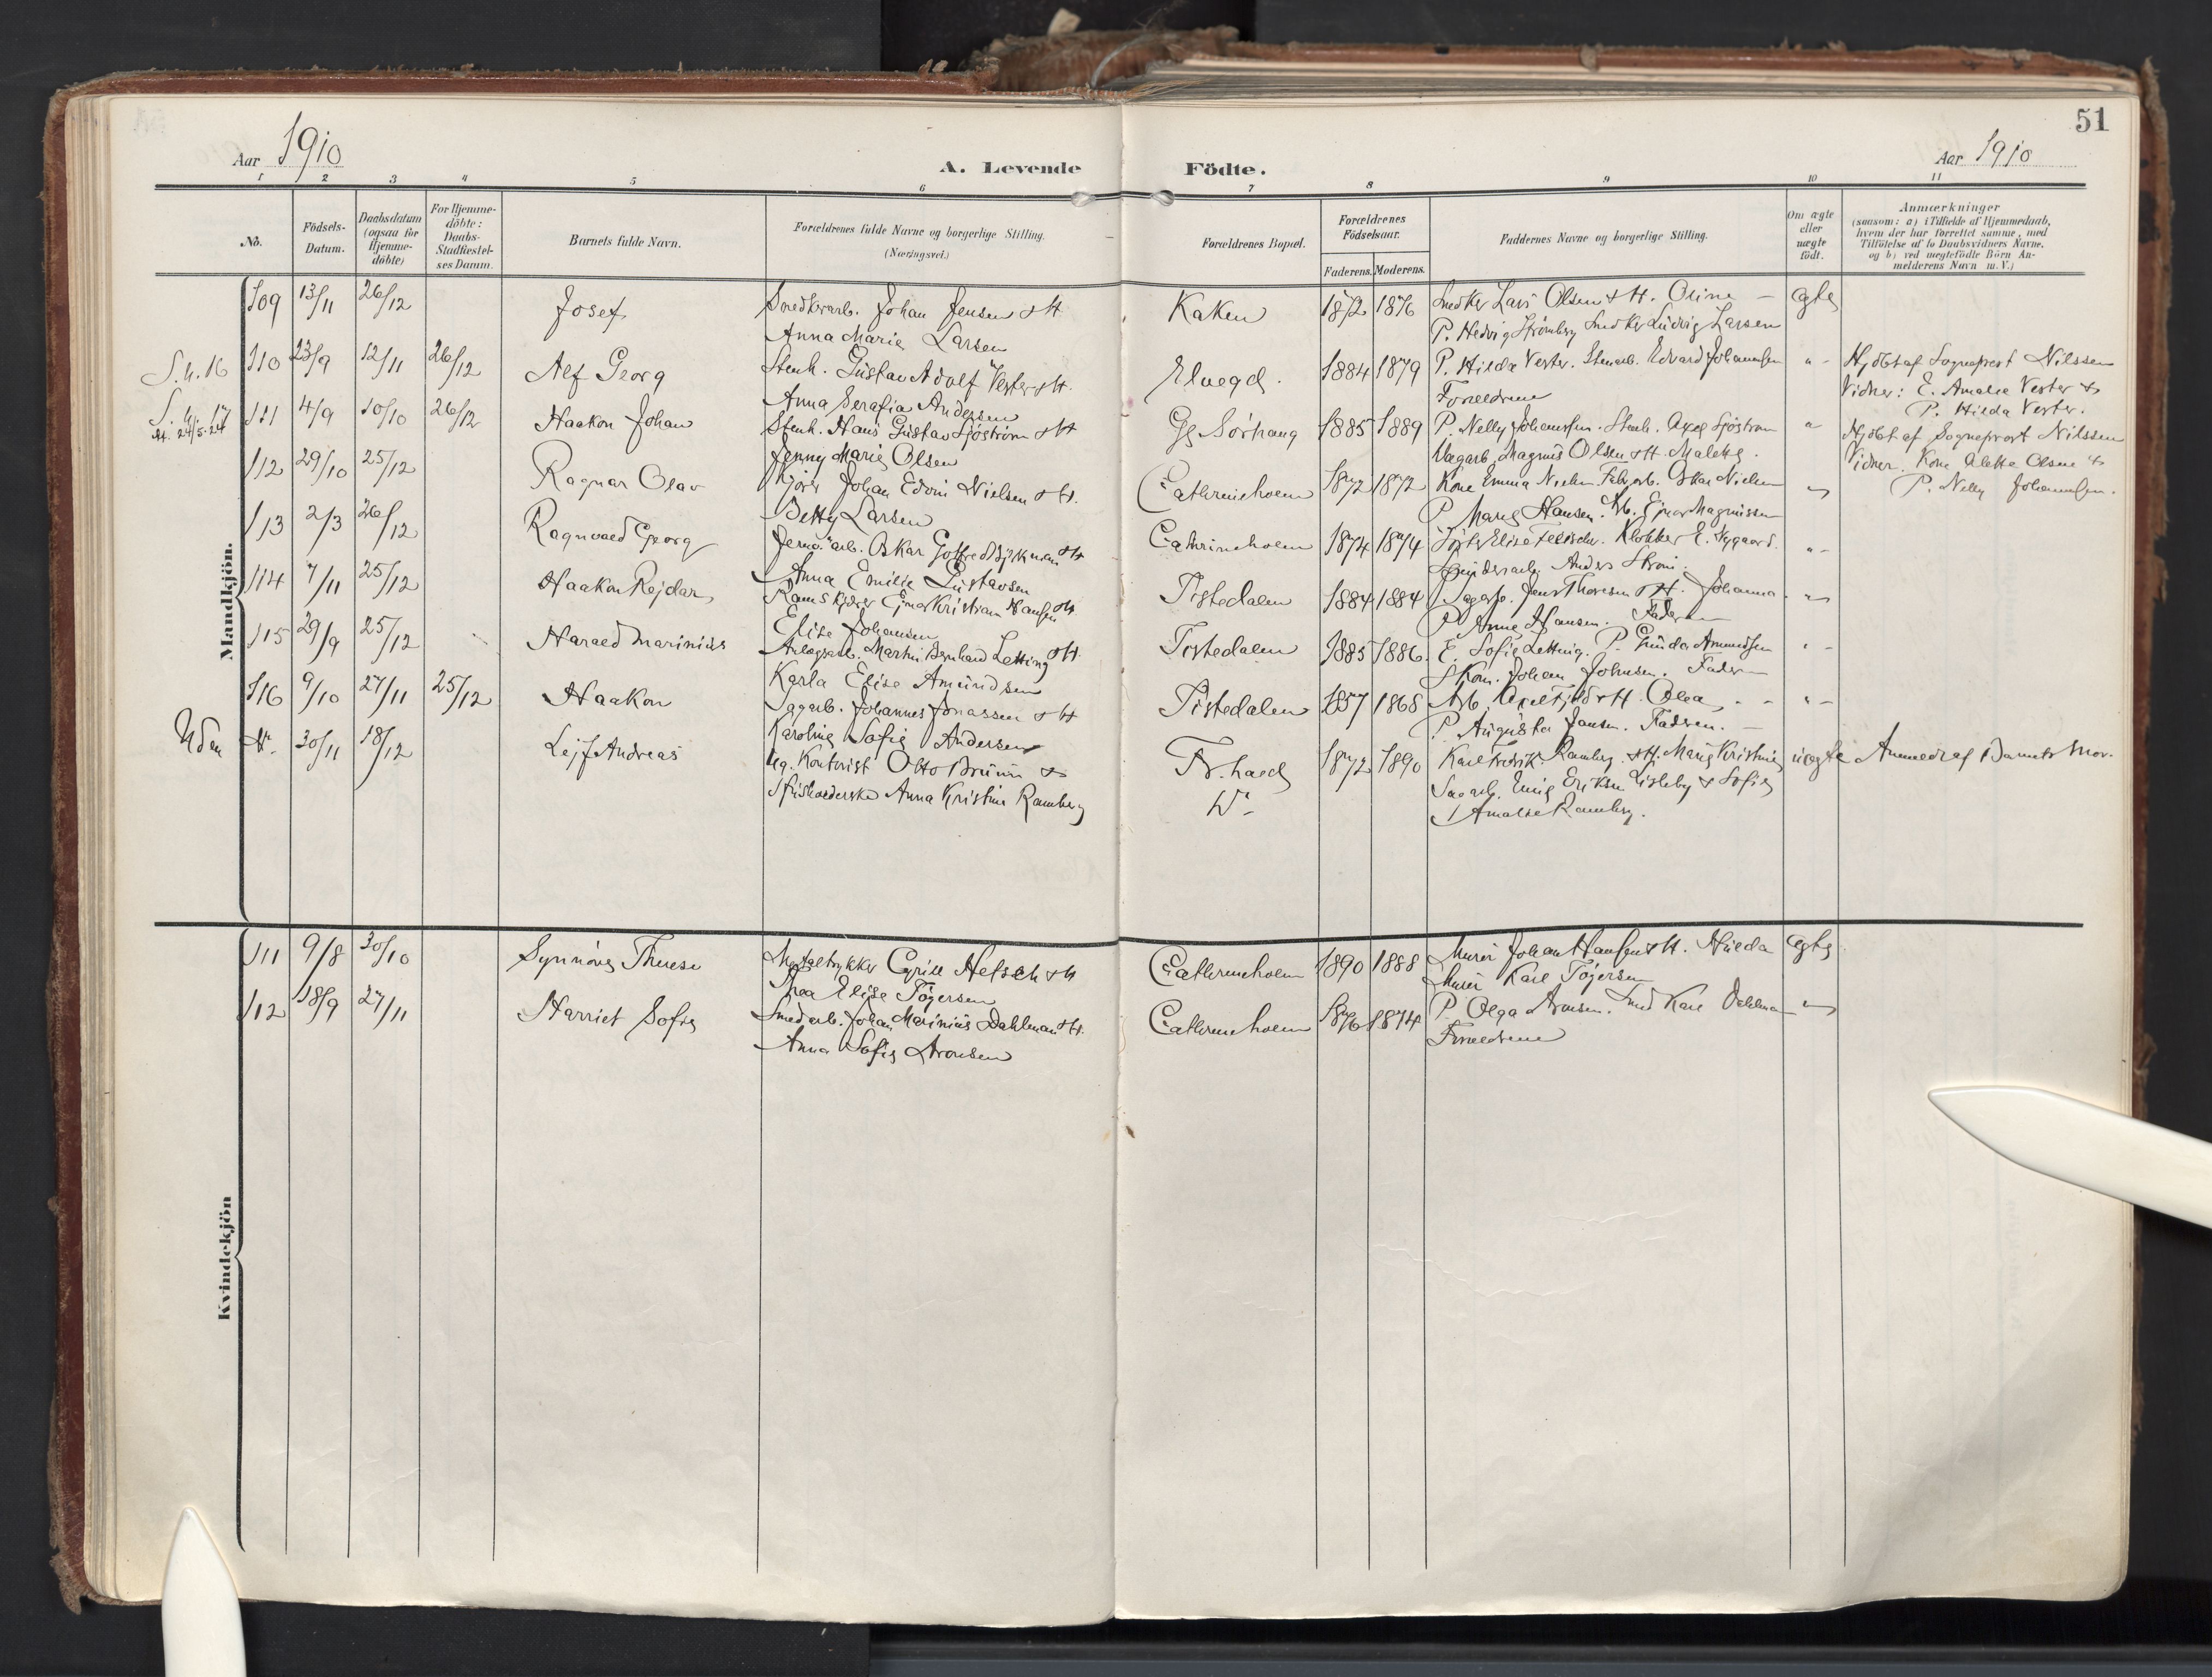 51
Aar 1910
A. Levende Födte.
Aar 1910
1 2 3 4 5 6 7 8 9 10 11
No.
Födsels-Datum.
Daabsdatum (ogsaa for Hjemme-döbte)
For Hjemme-döbte: Daabs-Stadfæstel-ses Datum.
Barnets fulde Navn.
Forældrenes fulde Navne og borgerlige Stilling.
(Næringsvei.)
Forældrenes Bopæl.
Forældrenes Födselsaar.
Faderens. Moderens.
Faddernes Navne og borgerlige Stilling.
Om ægte eller uægte födt.
Anmærkninger
(saasom: a) i Tilfælde af Hjemmedaab,
hvem der har forrettet samme, med
Tilföielse af to Daabsvidners Navne,
og b) ved uægtefödte Börn An-
melderens Navn m. V.)
Mandkjön.
109 13/11 26/12 Josef Snedkerarb. Johan Jensen & H Kaken 1872 1876 Snedker Lars Olsen & H. Oline ægte
Anna Marie Larsen P. Hedvig Strömberg Snedker Ludvig Larsen
S.h. 16 110 23/9 12/11 26/12 Alf Georg Stenh. Gustav Adolf Vester & H. 1884 1879 P. Hilda Vester. Stenarb. Edvard Johannesen " Hjdöbt af Sogneprest Nilssen
Anna Serafia Andersen Forældrene Vidner: E. Amalie Vester &
P. Hilda Vester.
S.h. 17 111 4/9 10/10 26/12 Haakon Johan Stenh. Hans Gustav Sjöström & H Gg Sörhaug 1885 1889 P. Nelly Johannesen. Stenh. Axel Sjöström " Hjdöbt af Sogneprest Nilssen
Jenny Marie Olsen Magnus Olsen & H. Vidner. Kone Alette Olsen &
P. Nelly Johannesen.
112 29/10 25/12 Ragnar Olav Kjörer Johan Edvin Nielsen & H. Cathrineholm 1872 1872 Kone Emma Nielsen Fabrarb. Oskar Nielsen "
Betty Larsen P. Marie Hansen. Arb. Ejnar Magnussen
113 2/3 26/12 Ragnvald Georg Oskar Gottfred & H Cathrineholm 1874 1874 Klokker E. Nygaard. "
Anna Emilie Gustavsen Anders Ström.
114 7/11 25/12 Haakon Rejdar Ejnar Kristian Hansen & H Tistedalen 1884 1884 Jens Thoresen & H. Johanna "
Elise Johansen P. Anna Hansen. Faderen
115 29/9 25/12 Harald Marinius Anlægsarb. Martin Bernhard Letting & H. Tistedalen 1885 1886 E. Sofie Letting. P. Gunda Amundsen "
Karla Elise Amundsen Johan Johnsen. Faderen
116 9/10 27/11 25/12 Haakon Sagarb. Johannes Jonassen & H Tistedalen 1857 1868 Arb. Axel & H. Olea "
Karoline Sofie Andersen P. Augusta Jansen. Fadren.
Uden Nr. 30/11 18/12 Lejf Andreas Ug. Kontorist Otto Bruun & Fr.hald 1872 1890 Karl Fredrik Ramberg & H. Marie Kristine uægte Anmeldt af Barnets Mor.
Anna Kristine Ramberg Sagarb. Emil Eriksen Lisleby & Sofie
Amalie Ramberg.
Kvindekjön
111 9/8 30/10 Synnöve Therese Metaltrykker Cyrill & H Cathrineholm 1890 1888 Murer Johan Hansen & H. Hulda ægte
Thea Elise Töjersen Murer Karl Töjersen
112 18/9 27/11 Harriet Sofie Smedarb. Johan Marinius Dahlman & H. Cathrineholm 1876 1874 P. Olga Aronsen. Smed Karl Dahlman "
Anna Sofie Aronsen Forældrene